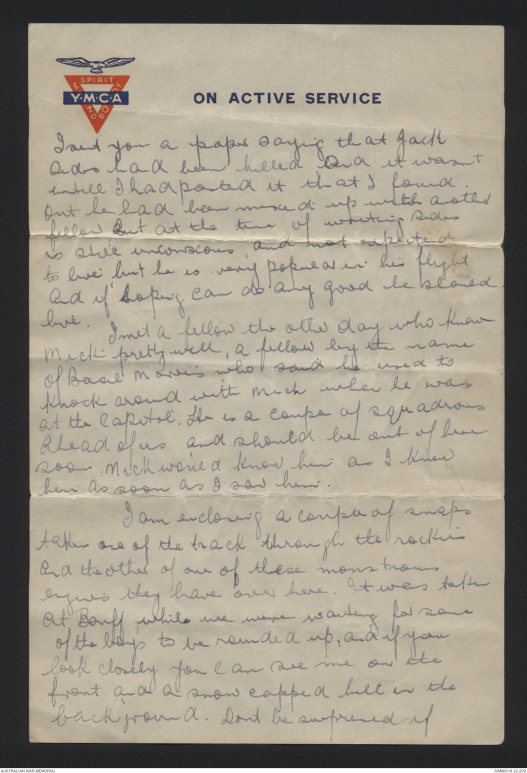 SPIRIT
MIND
BODY
Y·M·C·A
ON ACTIVE SERVICE
I sent you a paper saying that Jack
Sides had been killed and it wasn't
untill I had posted it that I found
out he had been mixed up with another
fellow But at the time of writing Sides
is still unconscous, and not expected
to live but he is very popular in his flight
and if hoping can do any good he should
live.
I met a fellow the other day who knew
Mick pretty well, a fellow by the name
of Basil Morris who said he used to
knock around with Mick when he was
at the Capitol. He is a coupe of squadrons
ahead of us and should be out of here
soon. Mick would know him as I knew
him as soon as I saw him.
I am enclosing a coupe of snaps
taken one of the track through the rockies
and the other of one of these monstrous
engines they have over here. It was taken
at Banff while we were waiting for some
of the boys to be rounded up, and if you
look closely you can see me on the
front and a snow capped hill in the
background. Dont be surprised if
AUSTRALIAN WAR MEMORIAL